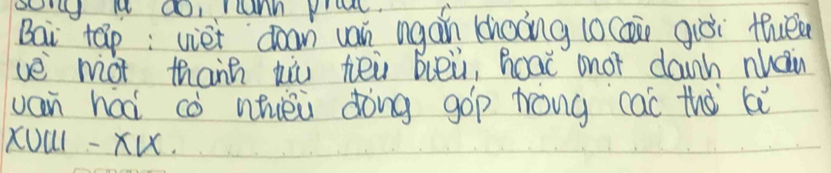 sống là do, hạnh phúc.
Bài tập: viết đoạn văn ngắn khoảng 10 câu giới thiệu
về một thành tựu tiêu biểu, hoặc một danh nhân
văn hoá có nhiều đóng góp trong các thế kỉ
XVIII - XIX.